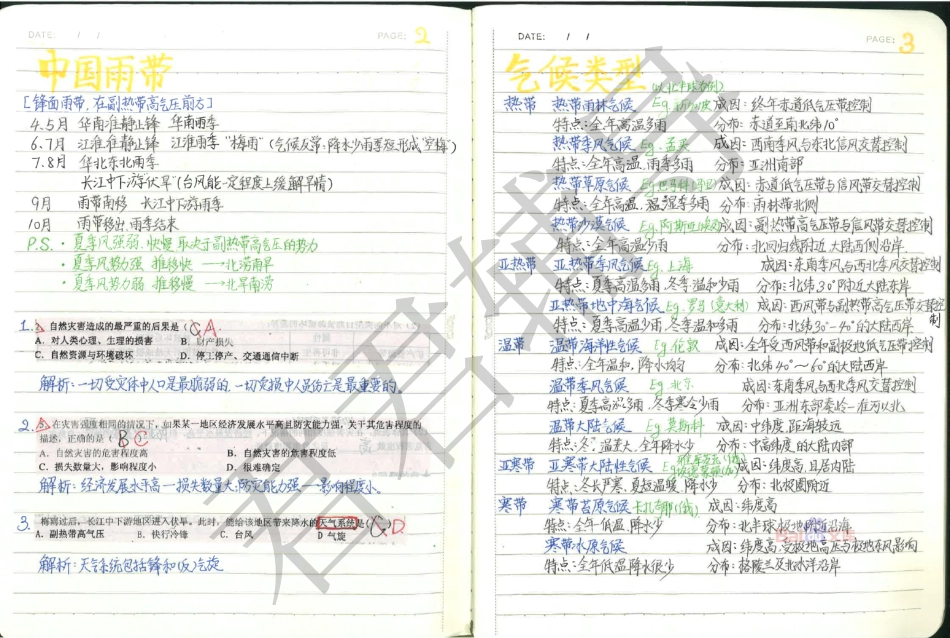 DATE: / /
PAGE: 2
中国雨带
[锋面雨带,在副热带高气压前方]
4.5月 华南准静止锋 华南雨季
6.7月 江淮准静止锋 江淮雨季 "梅雨"(气候反常:降水少雨季短,形成"空梅")
7.8月 华北东北雨季
长江中下游"伏旱"(台风能一定程度上缓解旱情)
9月 雨带南移 长江中下游雨季
10月 雨带移出,雨季结束
P.S. · 夏季风强弱、快慢取决于副热带高气压的势力
· 夏季风势力强 推移快 → 北涝南旱
· 夏季风势力弱 推移慢 → 北旱南涝
1. 自然灾害造成的最严重的后果是( A
A. 对人类心理、生理的损害 B. 财产损失
C. 自然资源与环境破坏 D. 停工停产、交通通信中断
解析:一切受灾体中人口是最脆弱的,一切受损中人员伤亡是最重要的。
2. 在灾害强度相同的情况下,如果某一地区经济发展水平高且防灾能力强,关于其危害程度的
描述,正确的是( B C
A. 自然灾害的危害程度高 B. 自然灾害的危害程度低
C. 损失数量大,影响程度小 D. 很难确定
解析:经济发展水平高—损失数量大;防灾能力强—影响程度小。
3. 梅雨过后,长江中下游地区进入伏旱。此时,能给该地区带来降水的天气系统是( ) D
A. 副热带高气压 B. 快行冷锋 C. 台风 D 气旋
解析:天气系统包括锋和(反)气旋
DATE: / /
PAGE: 3
气候类型 (以北半球为例)
热带 热带雨林气候 Eg.新加坡 成因:终年赤道低气压带控制
特点:全年高温多雨 分布:赤道至南北纬10°
热带季风气候 Eg.孟买 成因:西南季风与东北信风交替控制
特点:全年高温,雨季多雨 分布:亚洲南部
热带草原气候 Eg.巴马科 成因:赤道低气压带与信风带交替控制
特点:全年高温,湿季多雨 分布:雨林带北侧
热带沙漠气候 Eg.阿斯旺 成因:副热带高气压带与信风带交替控制
特点:全年高温少雨 分布:北回归线附近大陆西侧沿岸
亚热带 亚热带季风气候 Eg.上海 成因:东南季风与西北季风交替控制
特点:夏季高温多雨、冬季温和少雨 分布:北纬30°附近大陆东岸
亚热带地中海气候 Eg.罗马(意大利) 成因:西风带与副热带高气压带交替控制
特点:夏季高温少雨、冬季温和多雨 分布:北纬30°-40°的大陆西岸
温带 温带海洋性气候 Eg.伦敦 成因:全年受西风带和副极地低气压带控制
特点:全年温和,降水均匀 分布:北纬40°~60°的大陆西岸
温带季风气候 Eg.北京 成因:东南季风与西北季风交替控制
特点:夏季高温多雨、冬季寒冷少雨 分布:亚洲东部秦岭—淮河以北
温带大陆气候 Eg.莫斯科 成因:中纬度,距海较远
特点:冬冷,温差大,全年降水少 分布:中高纬度的大陆内部
亚寒带 亚寒带大陆性气候 成因:纬度高,且居内陆
特点:冬长严寒、夏短温暖,降水少 分布:北极圈附近
寒带 寒带苔原气候 成因:纬度高
特点:全年低温,降水少 分布:北半球极地附近沿海
寒带冰原气候 成因:纬度高,受极地高压与极地东风影响
特点:全年低温,降水很少 分布:格陵兰及北冰洋沿岸
君君辅导